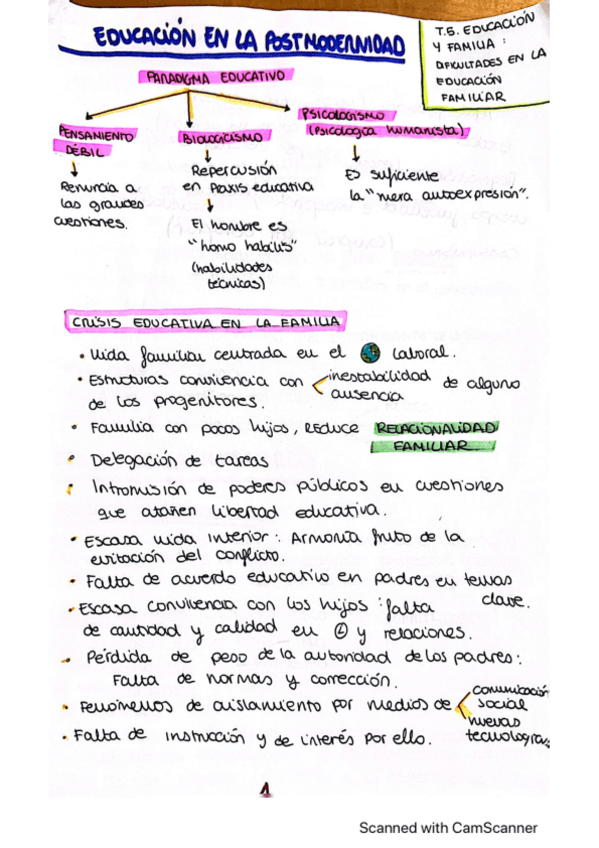 EDUCACIÓN EN LA POSTMODERNIDAD
T.5. EDUCACIÓN
Y FAMILIA :
DIFICULTADES EN LA
EDUCACIÓN
FAMILIAR
PARADIGMA EDUCATIVO
PENSAMIENTO
DÉBIL
Renuncia a
las grandes
cuestiones.
BIOLOGICISMO
Repercusión
en praxis educativa
El hombre es
"homo habilis"
(habilidades
técnicas)
PSICOLOGISMO
(Psicología humanista)
Es suficiente
la "mera autoexpresión".
CRISIS EDUCATIVA EN LA FAMILIA
• Vida familiar centrada en el laboral.
• Estructuras convivencia con inestabilidad de alguno
ausencia
de los progenitores.
• Familia con pocos hijos, reduce RELACIONALIDAD
FAMILIAR
• Delegación de tareas
• Intromisión de poderes públicos en cuestiones
que atañen libertad educativa.
• Escasa vida interior: Armonía fruto de la
evitación del conflicto.
• Falta de acuerdo educativo en padres en temas
clave.
• Escasa convivencia con los hijos : falta
de cantidad y calidad en y relaciones.
• Pérdida de peso de la autoridad de los padres:
Falta de normas y corrección.
• Fenómenos de aislamiento por medios de comunicación
social
nuevas
tecnologías
• Falta de instrucción y de interés por ello.
1
Scanned with CamScanner